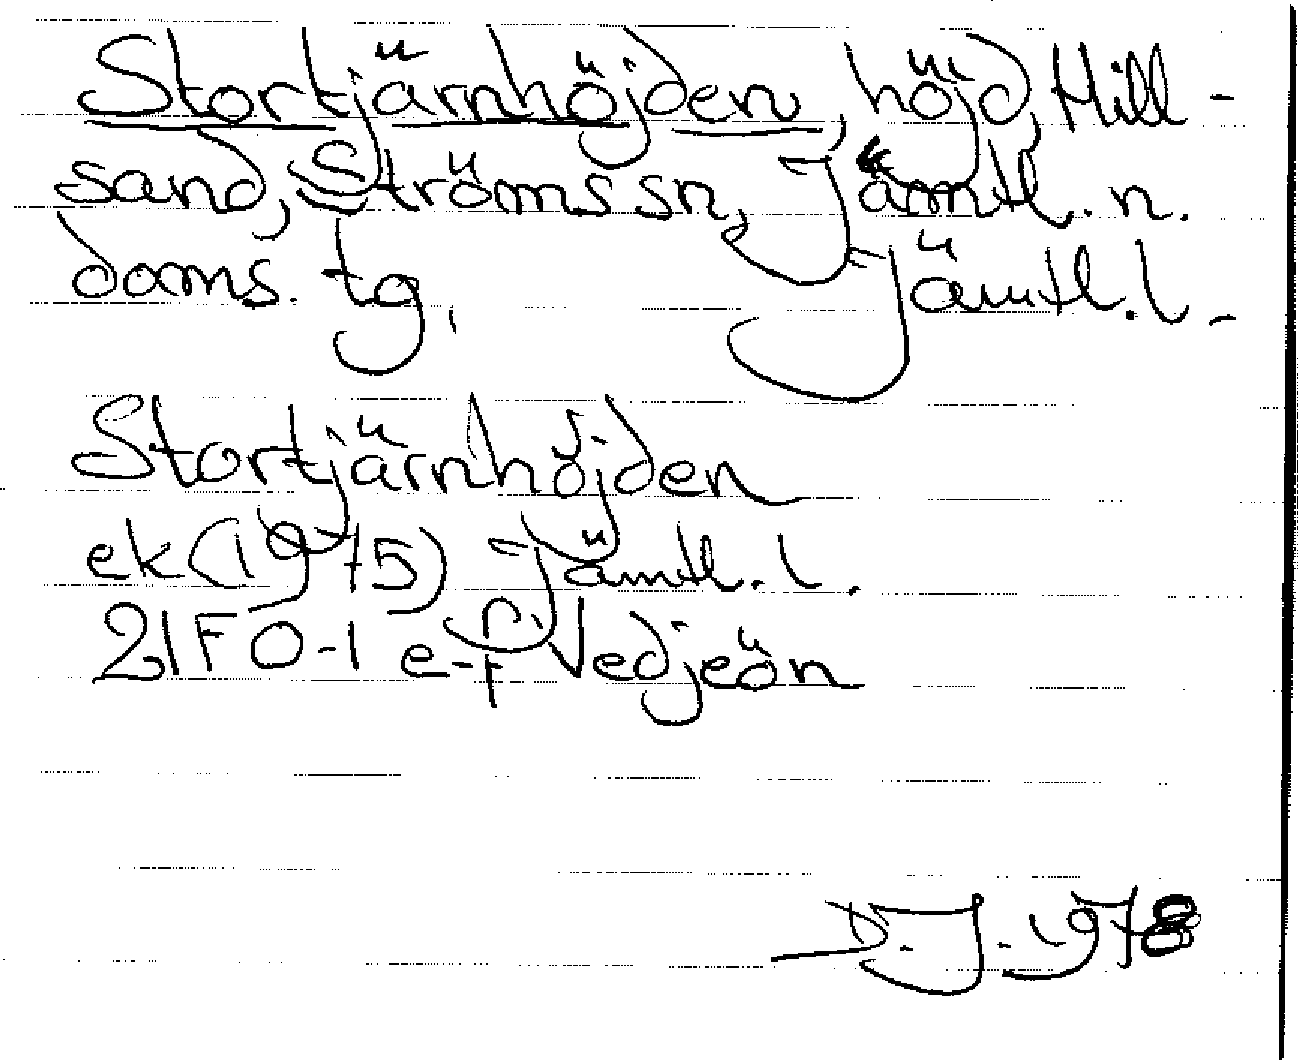 Stortjärnhöjden, höjd, Hill-
sand, Ströms sn, Jämtl. n.
doms. tg, Jämtl. l.
Stortjärnhöjden
ek (1975) Jämtl. l.
21F0-1 e-f Vedjeön
D. J. 1978